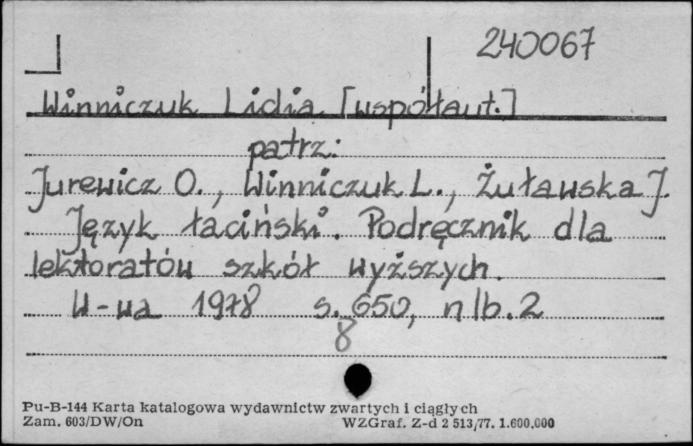 240067
Winniczuk Lidia [współaut.]
patrz:
Jurewicz O., Winniczuk L., Żuławska J.
Język łaciński. Podręcznik dla
lektoratów szkół wyższych.
W-wa 1978 s. 650, nlb. 2
8
Pu-B-144 Karta katalogowa wydawnictw zwartych i ciągłych
Zam. 603/DW/On WZGraf. Z-d 2 513/77. 1.600.000